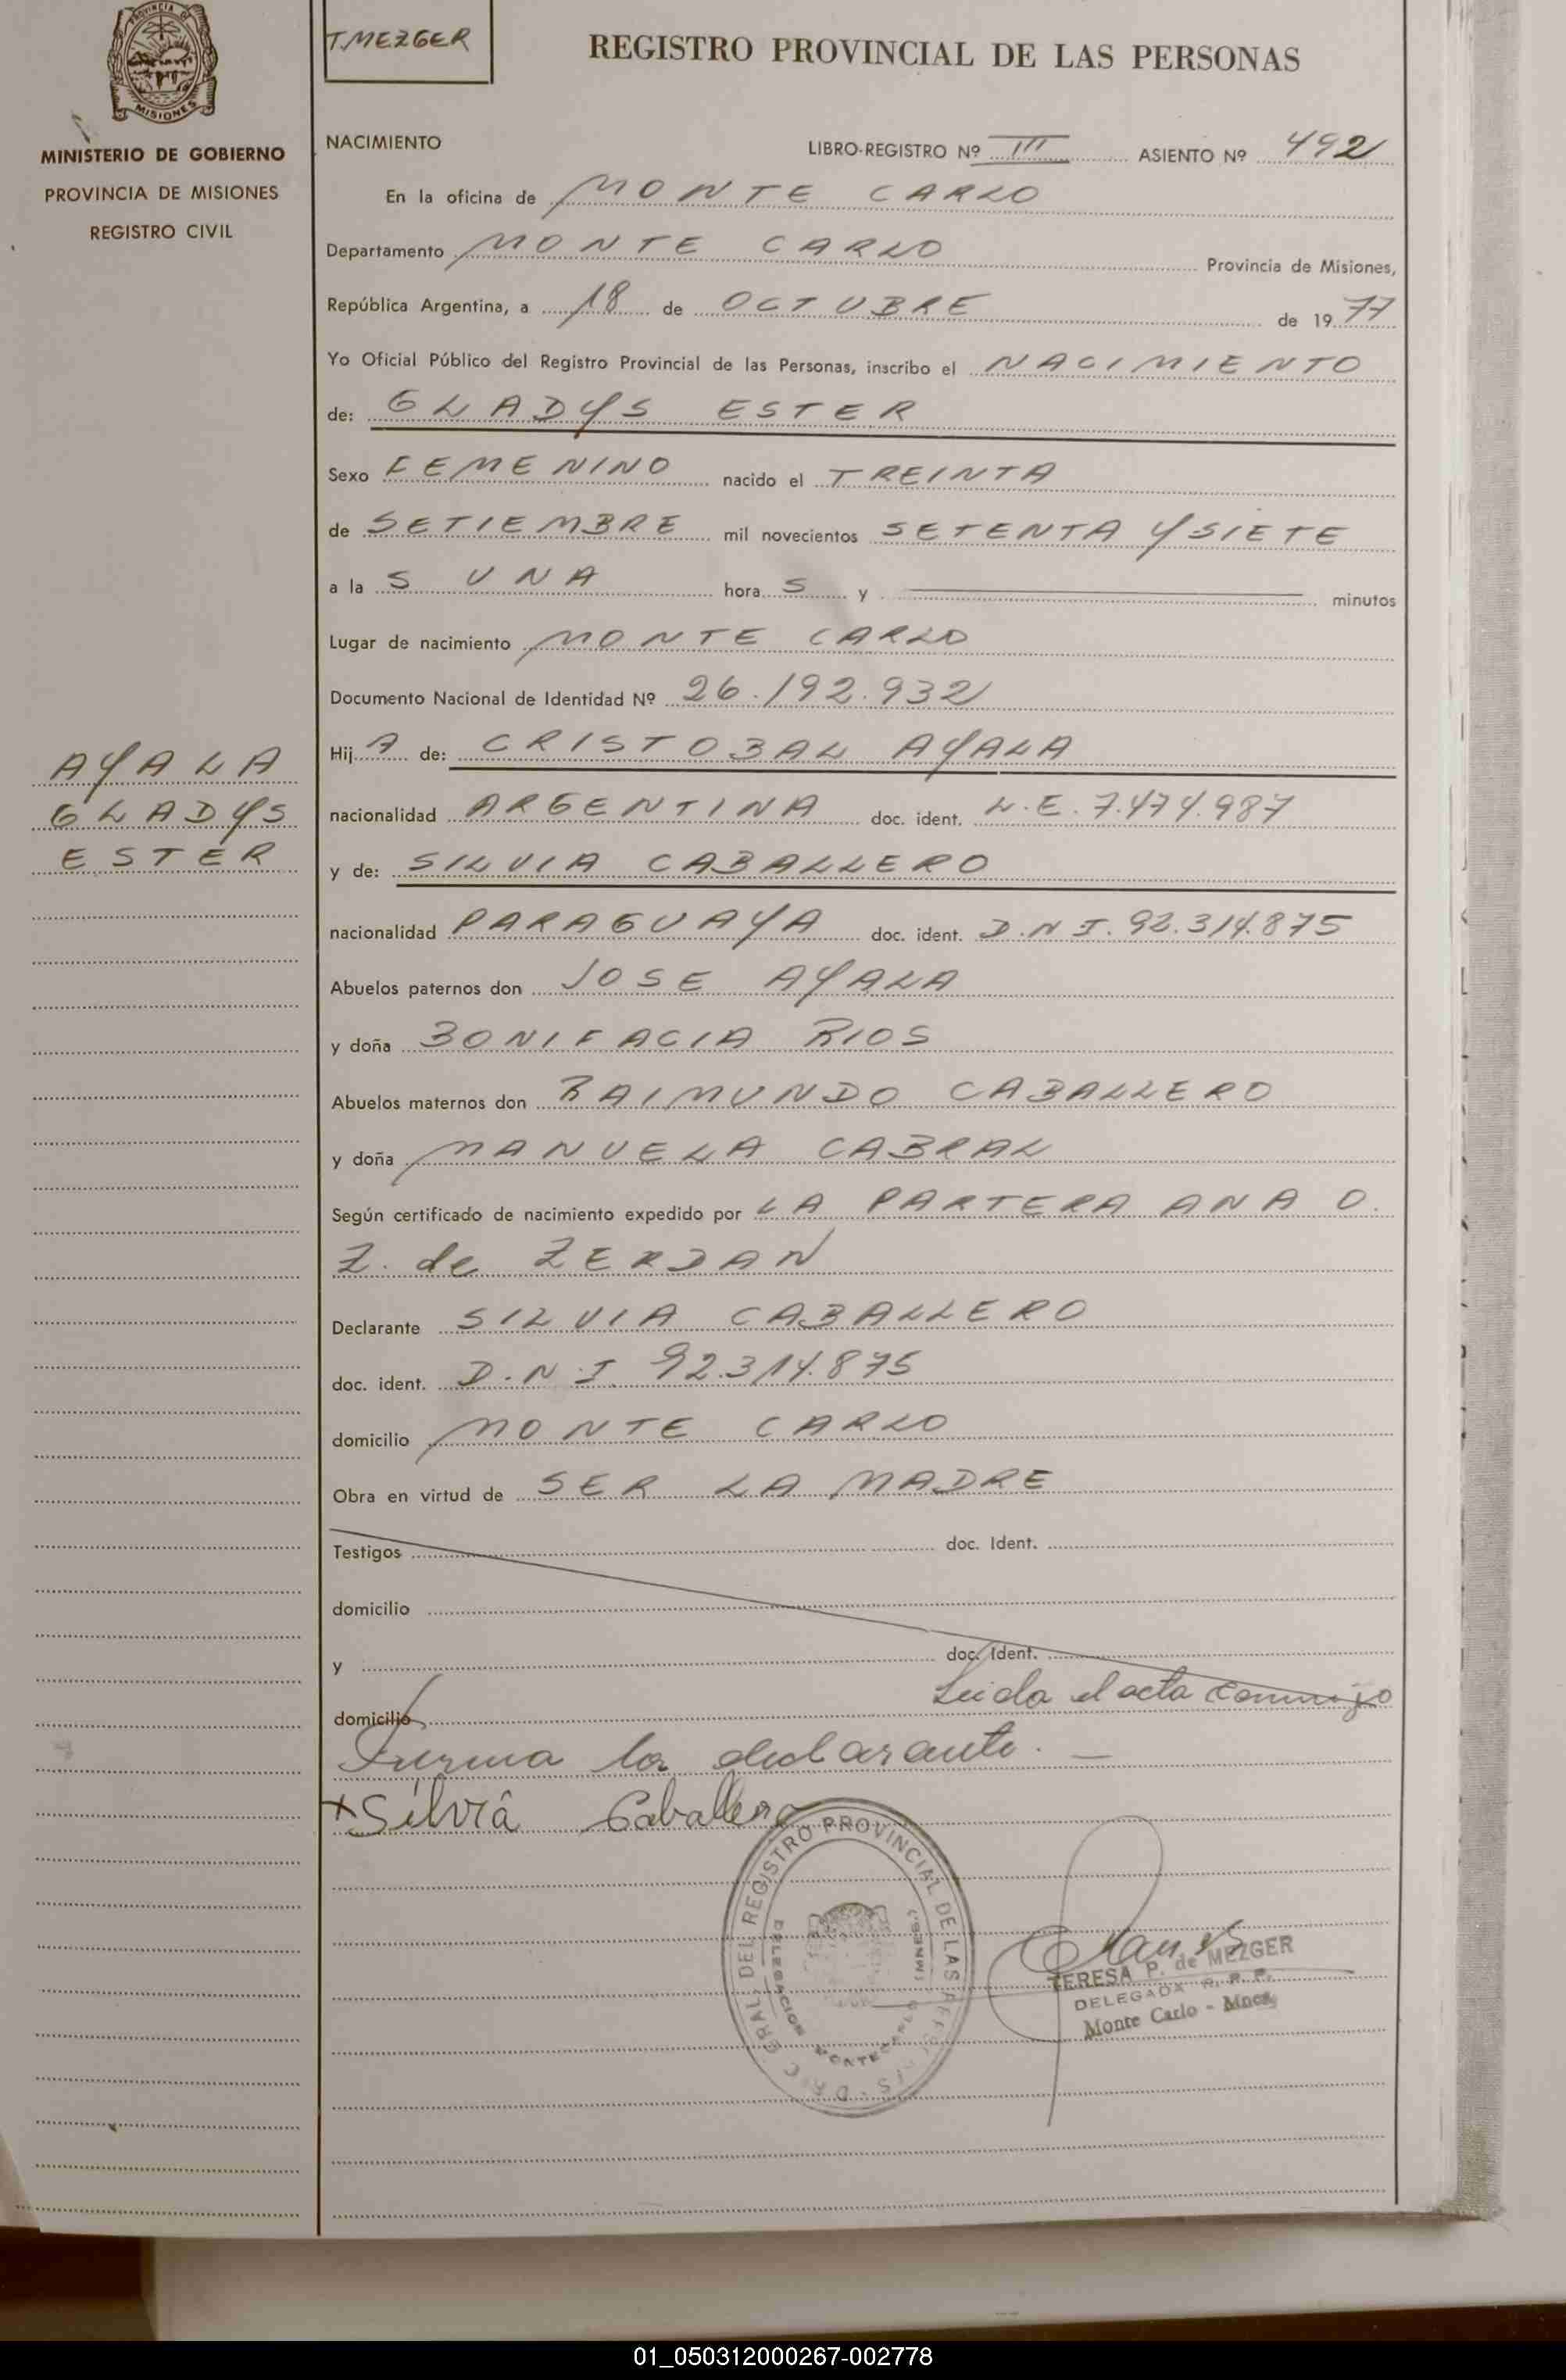 PROVINCIA DE
MISIONES
MINISTERIO DE GOBIERNO
PROVINCIA DE MISIONES
REGISTRO CIVIL
AYALA
GLADYS
ESTER
T.MEZGER
REGISTRO PROVINCIAL DE LAS PERSONAS
NACIMIENTO LIBRO-REGISTRO Nº III ASIENTO Nº 492
En la oficina de MONTE CARLO
Departamento MONTE CARLO Provincia de Misiones,
República Argentina, a 18 de OCTUBRE de 1977
Yo Oficial Público del Registro Provincial de las Personas, inscribo el NACIMIENTO
de: GLADYS ESTER
Sexo FEMENINO nacido el TREINTA
de SETIEMBRE mil novecientos SETENTA Y SIETE
a la S UNA hora S y minutos
Lugar de nacimiento MONTE CARLO
Documento Nacional de Identidad Nº 26.192.932
Hij A de: CRISTOBAL AYALA
nacionalidad ARGENTINA doc. ident. L.E. 7.474.987
y de: SILVIA CABALLERO
nacionalidad PARAGUAYA doc. ident. D.N.I. 92.314.875
Abuelos paternos don JOSE AYALA
y doña BONIFACIA RIOS
Abuelos maternos don RAIMUNDO CABALLERO
y doña MANUELA CABRAL
Según certificado de nacimiento expedido por LA PARTERA ANA O.
Z. de ZERDAN
Declarante SILVIA CABALLERO
doc. ident. D.N.I. 92.314.875
domicilio MONTE CARLO
Obra en virtud de SER LA MADRE
Testigos doc. Ident.
domicilio
y doc. Ident.
domicilio Leida el acta conmigo
Firma la declarante. —
+Silvia Caballero
REGISTRO PROVINCIAL DE LAS
DELEGACION MONTECARLO (MNES.)
TERESA P. de MEZGER
DELEGADA R. P. P.
Monte Carlo - Mnes.
01_050312000267-002778